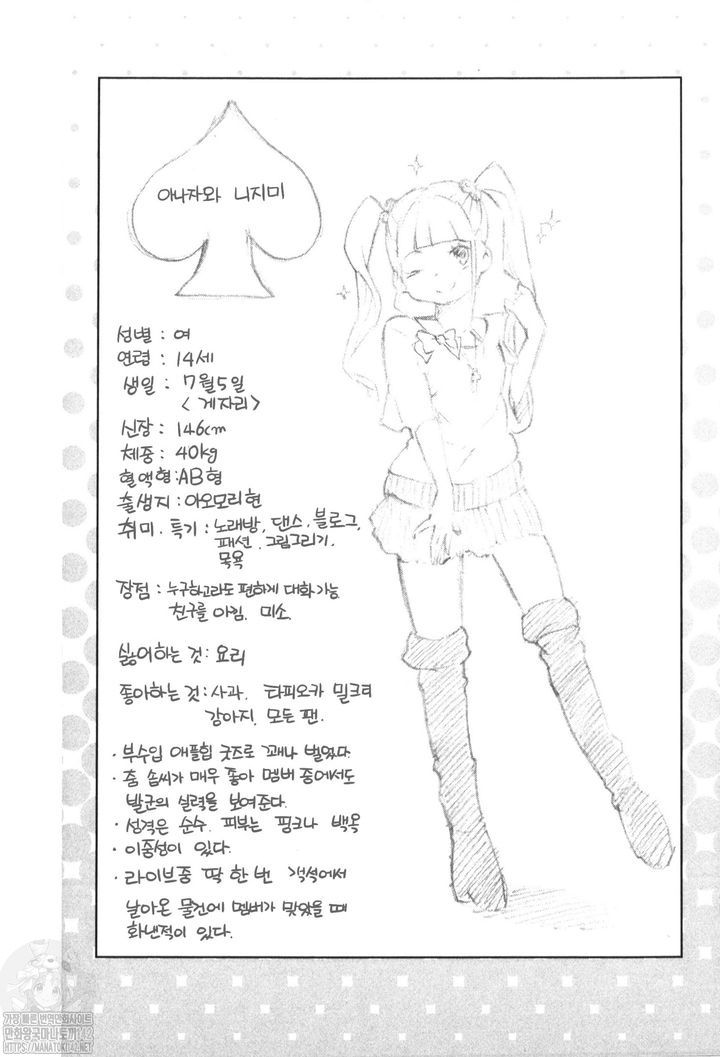 아나자와 니지미
성별 : 여
연령 : 14세
생일 : 7월5일
< 게자리 >
신장 : 146cm
체중 : 40kg
혈액형 : AB형
출생지 : 아오모리현
취미. 특기 : 노래방, 댄스, 블로그,
패션. 그림그리기.
목욕
장점 : 누구하고라도 편하게 대화가능
친구를 아낌. 미소.
싫어하는 것 : 요리
좋아하는 것 : 사과. 타피오카 밀크티
강아지. 모든 팬.
· 부수입 애플힙 굿즈로 꽤나 벌었다.
· 춤 솜씨가 매우 좋아 멤버 중에서도
발군의 실력을 보여준다.
· 성격은 순수. 피부는 핑크나 백옥
· 이중성이 있다.
· 라이브중 딱 한 번 객석에서
날아온 물건에 멤버가 맞았을 때
화낸적이 있다.
가장 빠른 번역만화사이트
만화왕국마나토끼142
HTTPS://MANATOKI142.NET